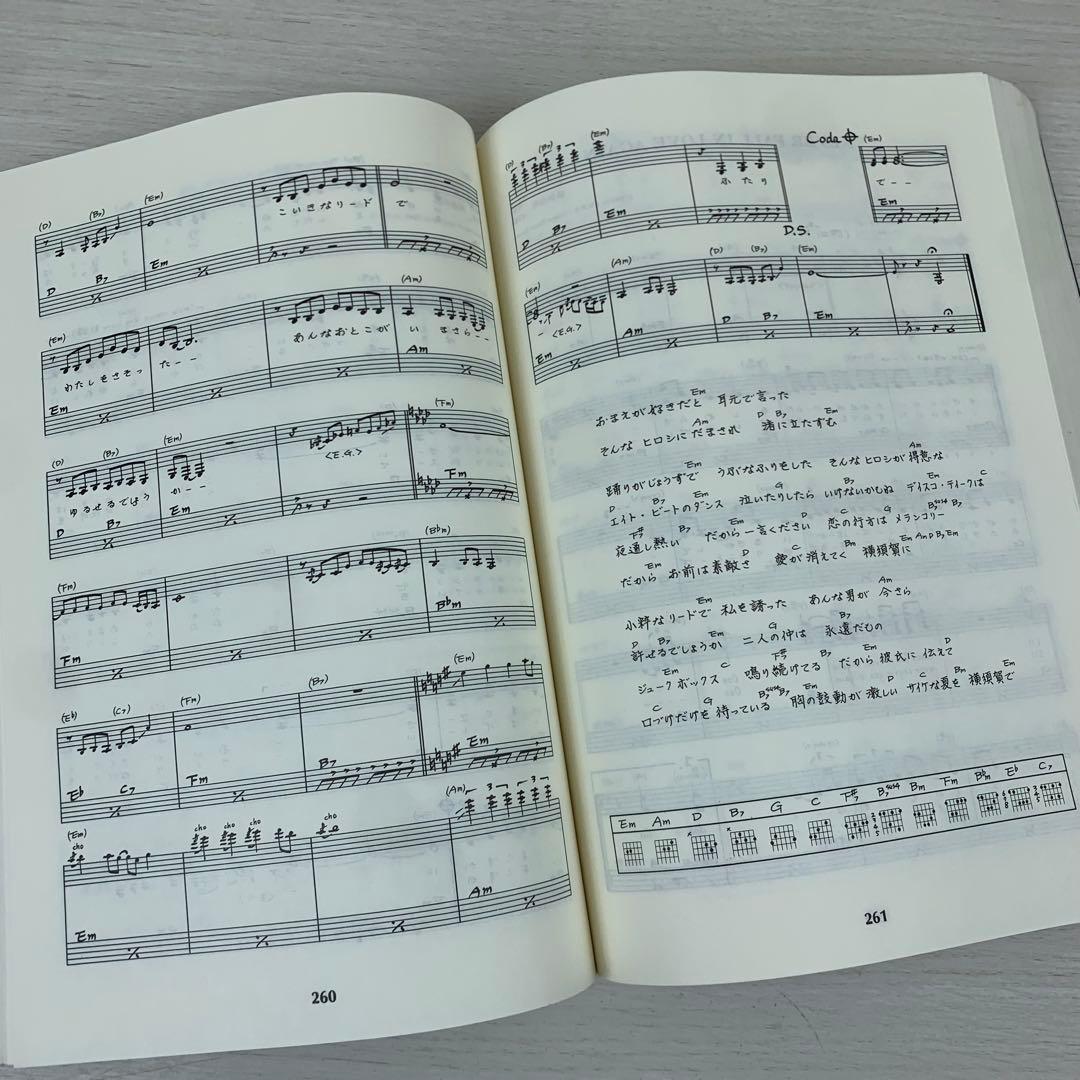 (D) (B7) (Em)
こいきなリード で
D B7 Em
(Em) (Am)
わたしをさそっ たーー あんなおとこが い まさらーー
Em Am
(D) (B7) (Em) (Fm)
<E.G.>
ゆるせるでしょう かーー
D B7 Em Fm
(Fm) (B♭m)
Fm B♭m
(E♭) (C7) (Fm) (B7) (Em)
E♭ C7 Fm B7 Em
(Em) (Am)
cho cho cho cho cho 3 3
Em Am
260
(D) (B7) (Em) Coda (Em)
3 3
ふたり でーー
D B7 Em Em
D.S.
(Em) (Am) (D) (B7) (Em)
<E.G.>
Em Am D B7 Em
Em
おまえが好きだと 耳元で言った
Am D B7 Em
そんな ヒロシに だまされ 渚に立たずむ
Em Am
踊りがじょうずで うぶなふりをした そんなヒロシが 得意な
D B7 Em G B7 Em C
エイト・ビートのダンス 泣いたりしたら いけないかしね ディスコ・ティークは
F# B7 Em D C G B7sus4 B7
夜通し熱い だから一言ください 恋の行方は メランコリー
Em D C Bm Em Am D B7 Em
だから お前は素敵さ 愛が消えてく 横須賀に
Em Am
小粋なリードで 私を誘った あんな男が 今さら
D B7 Em G B7
許せるでしょうか 二人の仲は 永遠だもの
Em C F# B7 Em D
ジュークボックス 鳴り続けてる だから 彼氏に 伝えて
C G B7sus4 B7 Em D C Bm Em
口づけだけを 待っている 胸の鼓動が 激しい サイケな夏を 横須賀で
Em Am D B7 G C F# B7sus4 Bm Fm B♭m E♭ C7
261